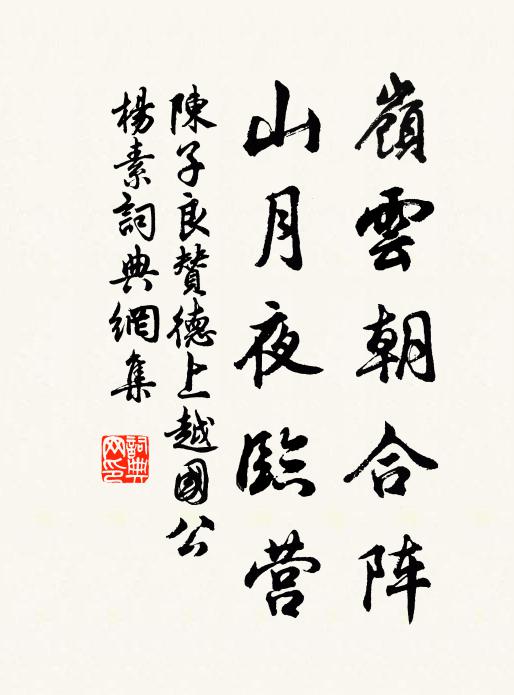 嶺雲朝合阵
山月夜臨营
陳子良賛德上越國公
楊素詞典網集
詞典网印